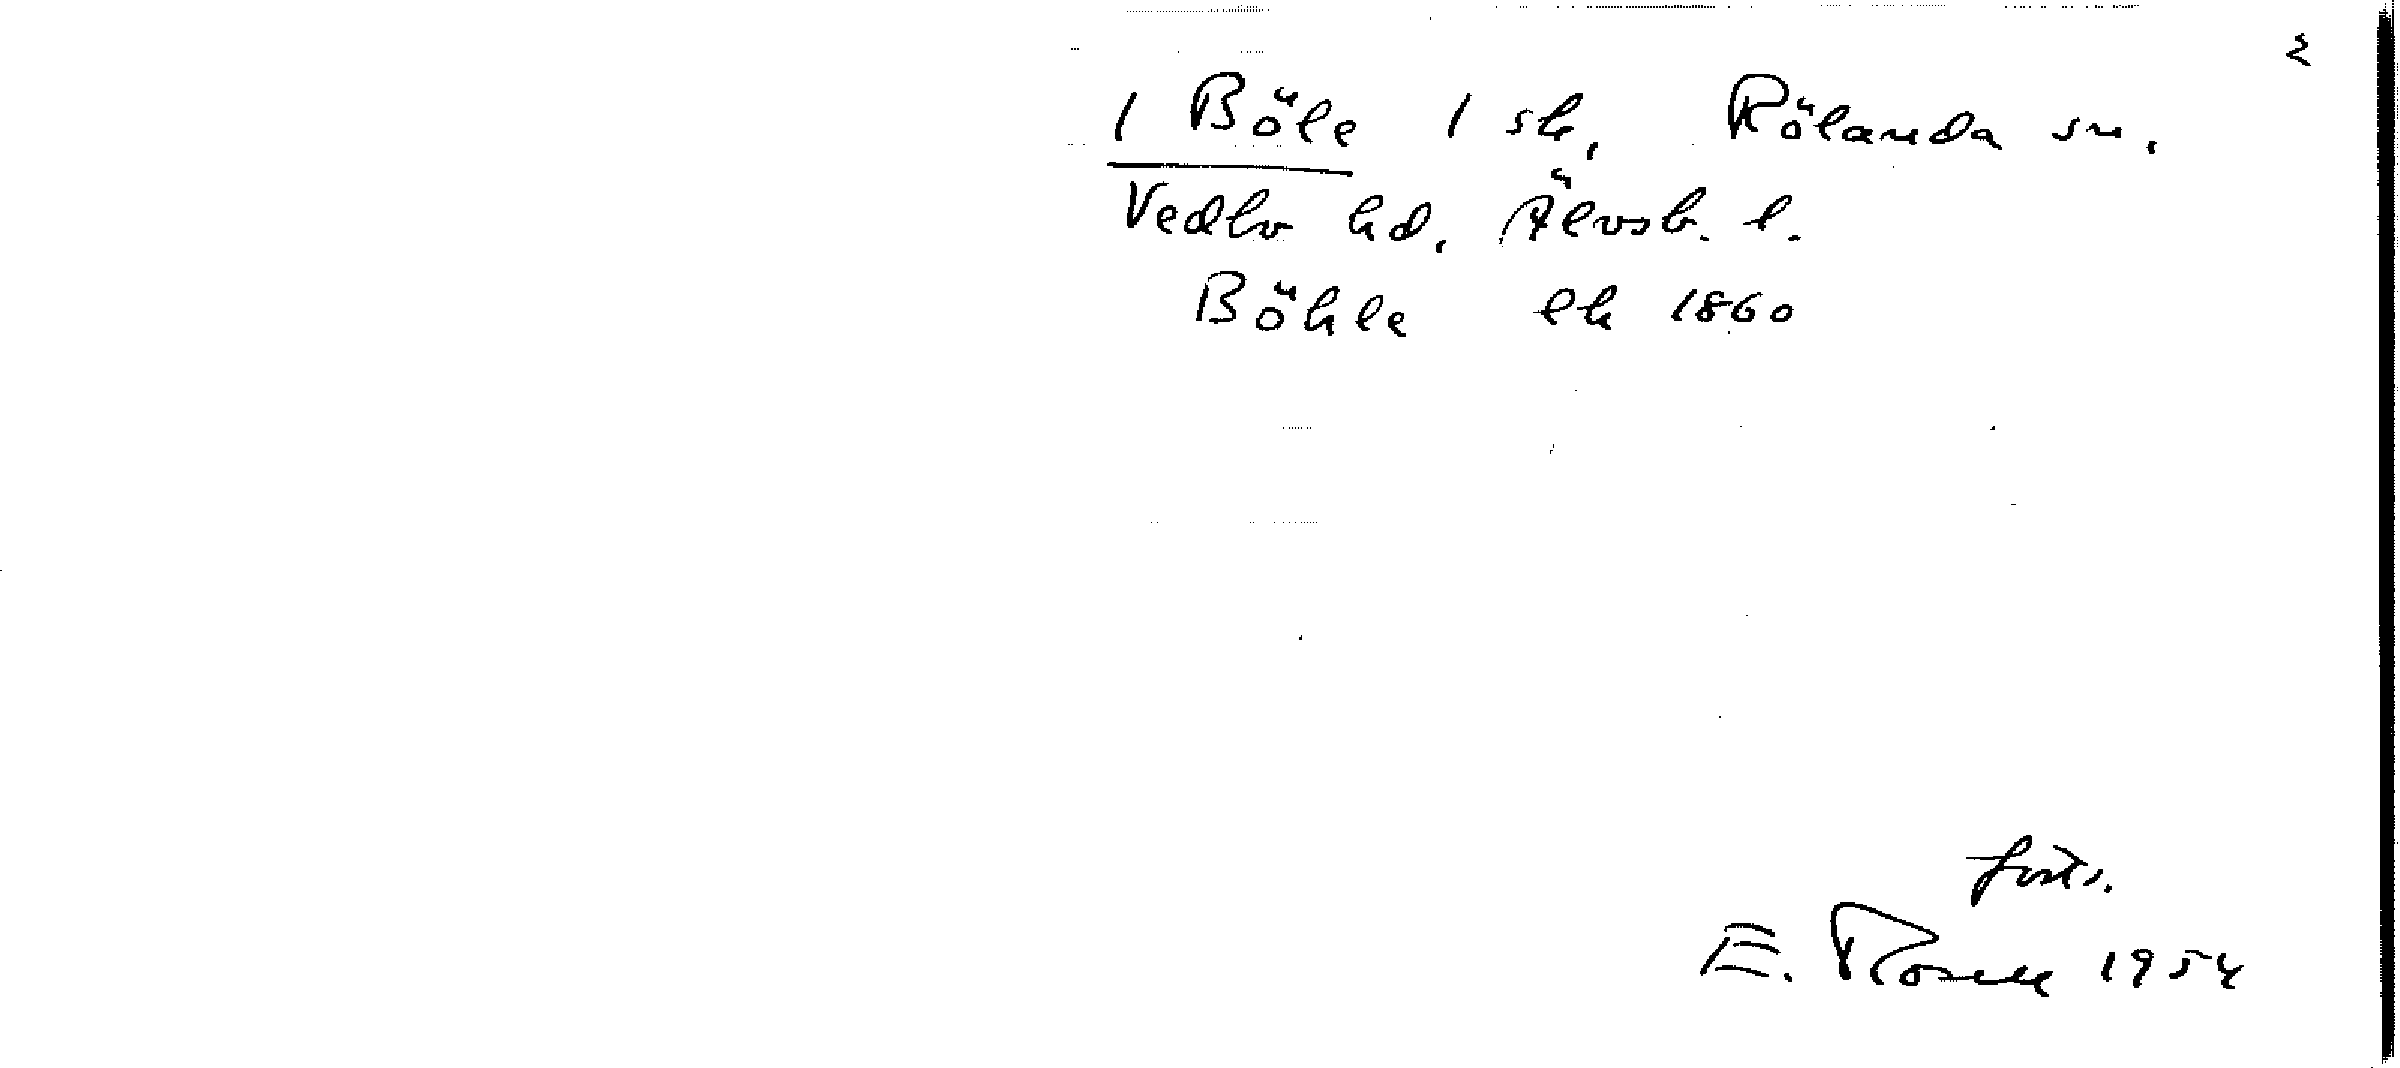 2
1 Böle 1 sk, Rölanda sn.
Vedbo hd. Älvsb. l.
Böhle ek 1860
forts.
E. Rosell 1954